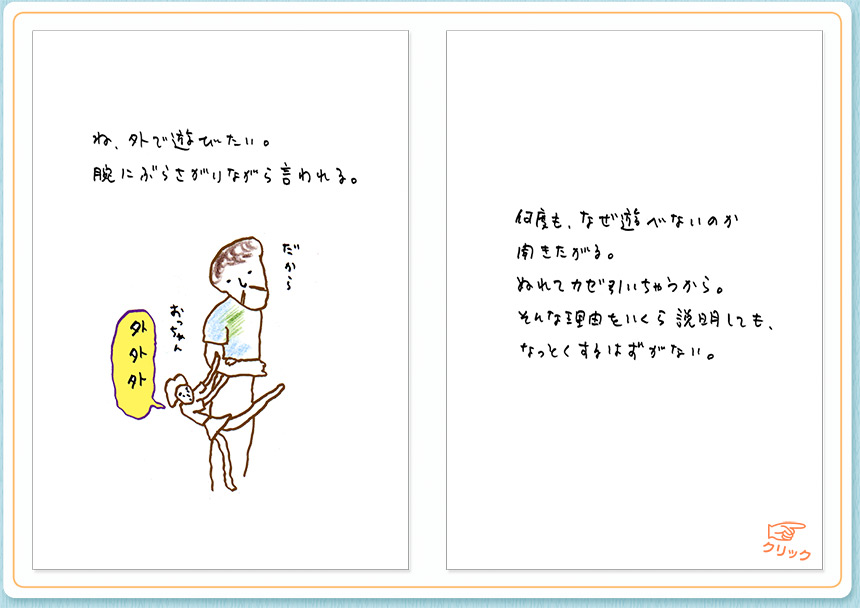 ね、外で遊びたい。
腕にぶらさがりながら言われる。
だから
おっちゃん
外
外
外
何度も、なぜ遊べないのか
聞きたがる。
ぬれてカゼ引いちゃうから。
そんな理由をいくら説明しても、
なっとくするはずがない。
クリック